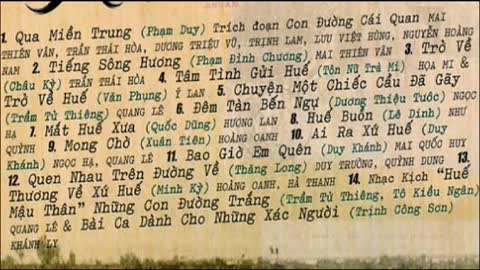 1. Qua Miền Trung (Phạm Duy) Trích đoạn Con Đường Cái Quan MAI
THIÊN VÂN, TRẦN THÁI HÒA, DƯƠNG TRIỆU VŨ, TRỊNH LAM, LƯU VIỆT HÙNG, NGUYỄN HOÀNG
NAM 2. Tiếng Sông Hương (Phạm Đình Chương) MAI THIÊN VÂN 3. Trở Về
(Châu Kỳ) TRẦN THÁI HÒA 4. Tâm Tình Gửi Huế (Tôn Nữ Trà Mi) HỌA MI &
Trở Về Huế (Văn Phụng) Ý LAN 5. Chuyện Một Chiếc Cầu Đã Gãy
(Trầm Tử Thiêng) QUANG LÊ 6. Đêm Tàn Bến Ngự (Dương Thiệu Tước) NGỌC
HẠ 7. Mắt Huế Xưa (Quốc Dũng) HƯƠNG LAN 8. Huế Buồn (Lê Dinh) NHƯ
QUỲNH 9. Mong Chờ (Xuân Tiên) HOÀNG OANH 10. Ai Ra Xứ Huế (Duy
Khánh) NGỌC HẠ, QUANG LÊ 11. Bao Giờ Em Quên (Duy Khánh) MAI QUỐC HUY
12. Quen Nhau Trên Đường Về (Thăng Long) DUY TRƯỜNG, QUỲNH DUNG 13.
Thương Về Xứ Huế (Minh Kỳ) HOÀNG OANH, HÀ THANH 14. Nhạc Kịch "Huế
Mậu Thân" Những Con Đường Trắng (Trầm Tử Thiêng, Tô Kiều Ngân)
QUANG LÊ & Bài Ca Dành Cho Những Xác Người (Trịnh Công Sơn)
KHÁNH LY